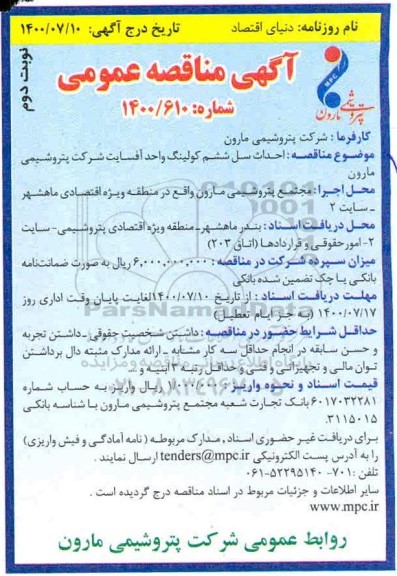 نام روزنامه: دنیای اقتصاد تاریخ درج آگهی: ۱۴۰۰/۰۷/۱۰
نوبت دوم
آگهی مناقصه عمومی
شماره: ۱۴۰۰/۶۱۰
MPC
پتروشیمی مارون
کارفرما : شرکت پتروشیمی مارون
موضوع مناقصه : احداث سل ششم کولینگ واحد آفسایت شرکت پتروشیمی
مارون
محل اجرا : مجتمع پتروشیمی مارون واقع در منطقه ویژه اقتصادی ماهشهر
ـ سایت ۲
محل دریافت اسناد : بندر ماهشهر- منطقه ویژه اقتصادی پتروشیمی- سایت
۲- امورحقوقی و قراردادها (اتاق ۲۰۳)
میزان سپرده شرکت در مناقصه : ۶,۰۰۰,۰۰۰,۰۰۰ ریال به صورت ضمانت‌نامه
بانکی یا چک تضمین شده بانکی
مهلت دریافت اسناد : از تاریخ ۱۴۰۰/۰۷/۱۰ لغایت پایان وقت اداری روز
۱۴۰۰/۰۷/۱۷ (به جز ایام تعطیل)
حداقل شرایط حضور در مناقصه : داشتن شخصیت حقوقی ـ داشتن تجربه
و حسن سابقه در انجام حداقل سه کار مشابه ـ ارائه مدارک مثبته دال برداشتن
توان مالی و تجهیزاتی و فنی و حداقل رتبه ۳ ابنیه و ...
قیمت اسناد و نحوه واریز : ریال واریز به حساب شماره
۶۰۱۷۰۳۲۲۸۱ بانک تجارت شعبه مجتمع پتروشیمی مارون با شناسه بانکی
۳۱۱۵۰۱۵.
برای دریافت غیر حضوری اسناد، مدارک مربوطه (نامه آمادگی و فیش واریزی)
را به آدرس پست الکترونیکی tenders@mpc.ir ارسال نمایند .
تلفن : ۷۰۱- ۰۶۱-۵۲۲۹۵۱۴۰
سایر اطلاعات و جزئیات مربوط در اسناد مناقصه درج گردیده است .
www.mpc.ir
روابط عمومی شرکت پتروشیمی مارون